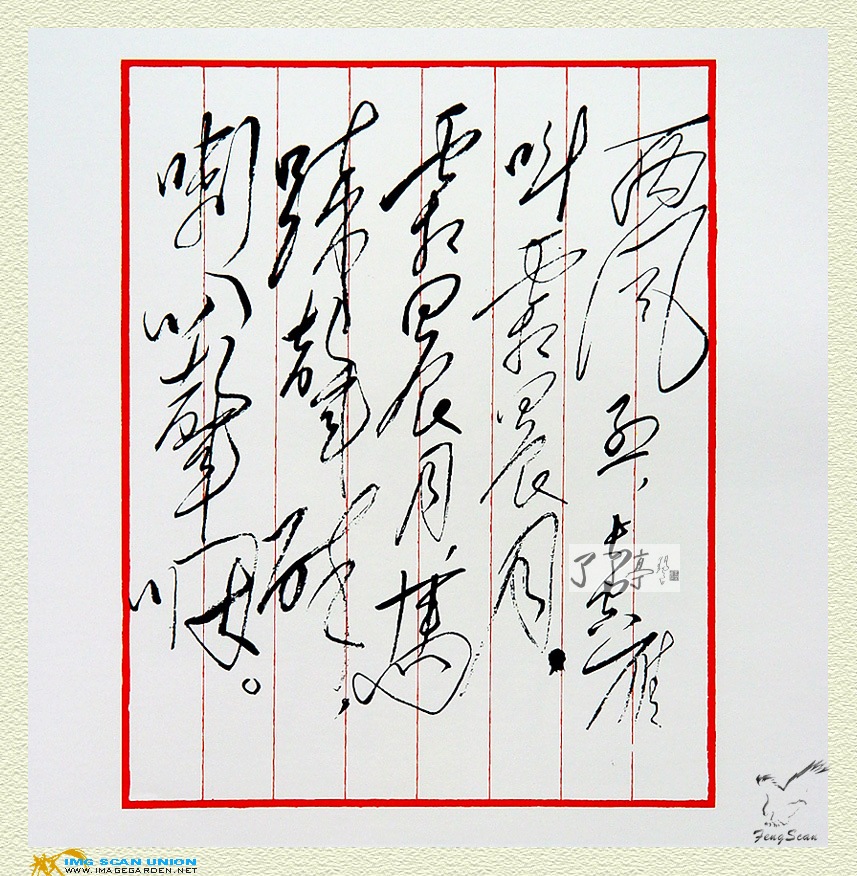 西風烈，長空雁
叫霜晨月。
霜晨月，馬
蹄聲碎，
喇叭聲咽。
了亭
FengScan
IMG SCAN UNION
WWW.IMAGEGARDEN.NET